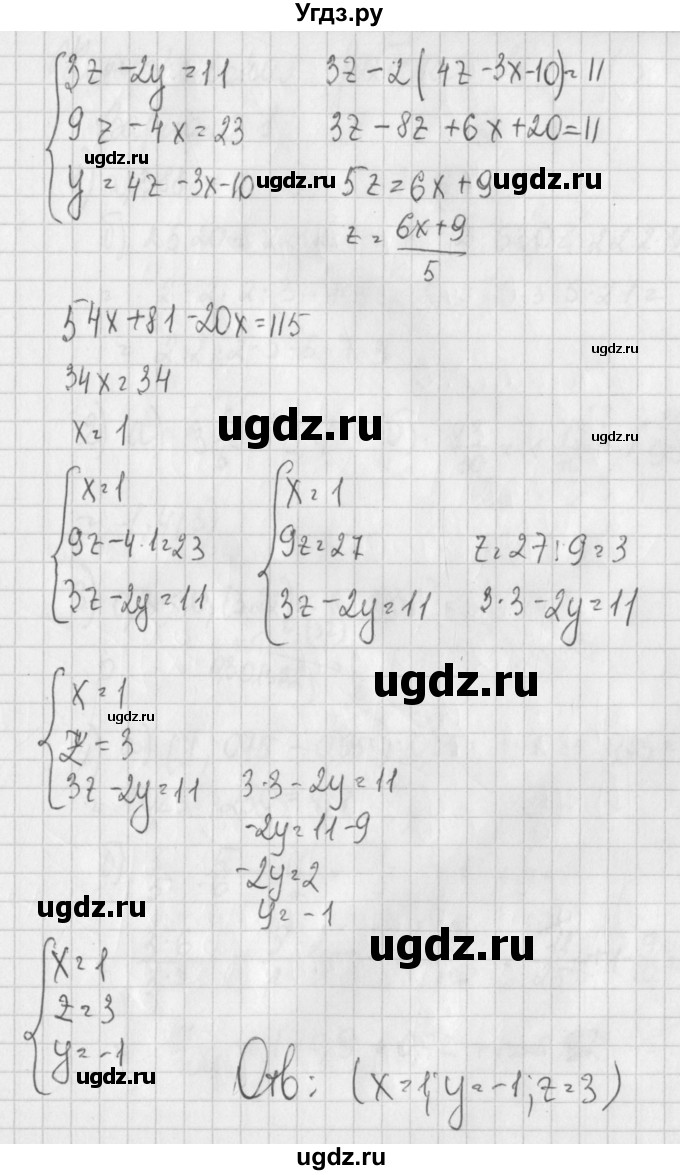 Угдз.ру
3z - 2y = 11
3z - 2(4z - 3x - 10) = 11
9z - 4x = 23
3z - 8z + 6x + 20 = 11
ugdz.ru
y = 4z - 3x - 10
ugdz.ru
5z = 6x + 9
ugdz.ru
z = (6x + 9)/5
54x + 81 - 20x = 115
ugdz.ru
34x = 34
x = 1
ugdz.ru
ugdz.ru
x = 1
x = 1
9z - 4·1 = 23
9z = 27
z = 27 : 9 = 3
3z - 2y = 11
3z - 2y = 11
3·3 - 2y = 11
ugdz.ru
x = 1
ugdz.ru
z = 3
3z - 2y = 11
3·3 - 2y = 11
-2y = 11 - 9
-2y = 2
ugdz.ru
y = -1
ugdz.ru
x = 1
z = 3
y = -1
ugdz.ru
Отв: (x = 1; y = -1; z = 3)
ugdz.ru